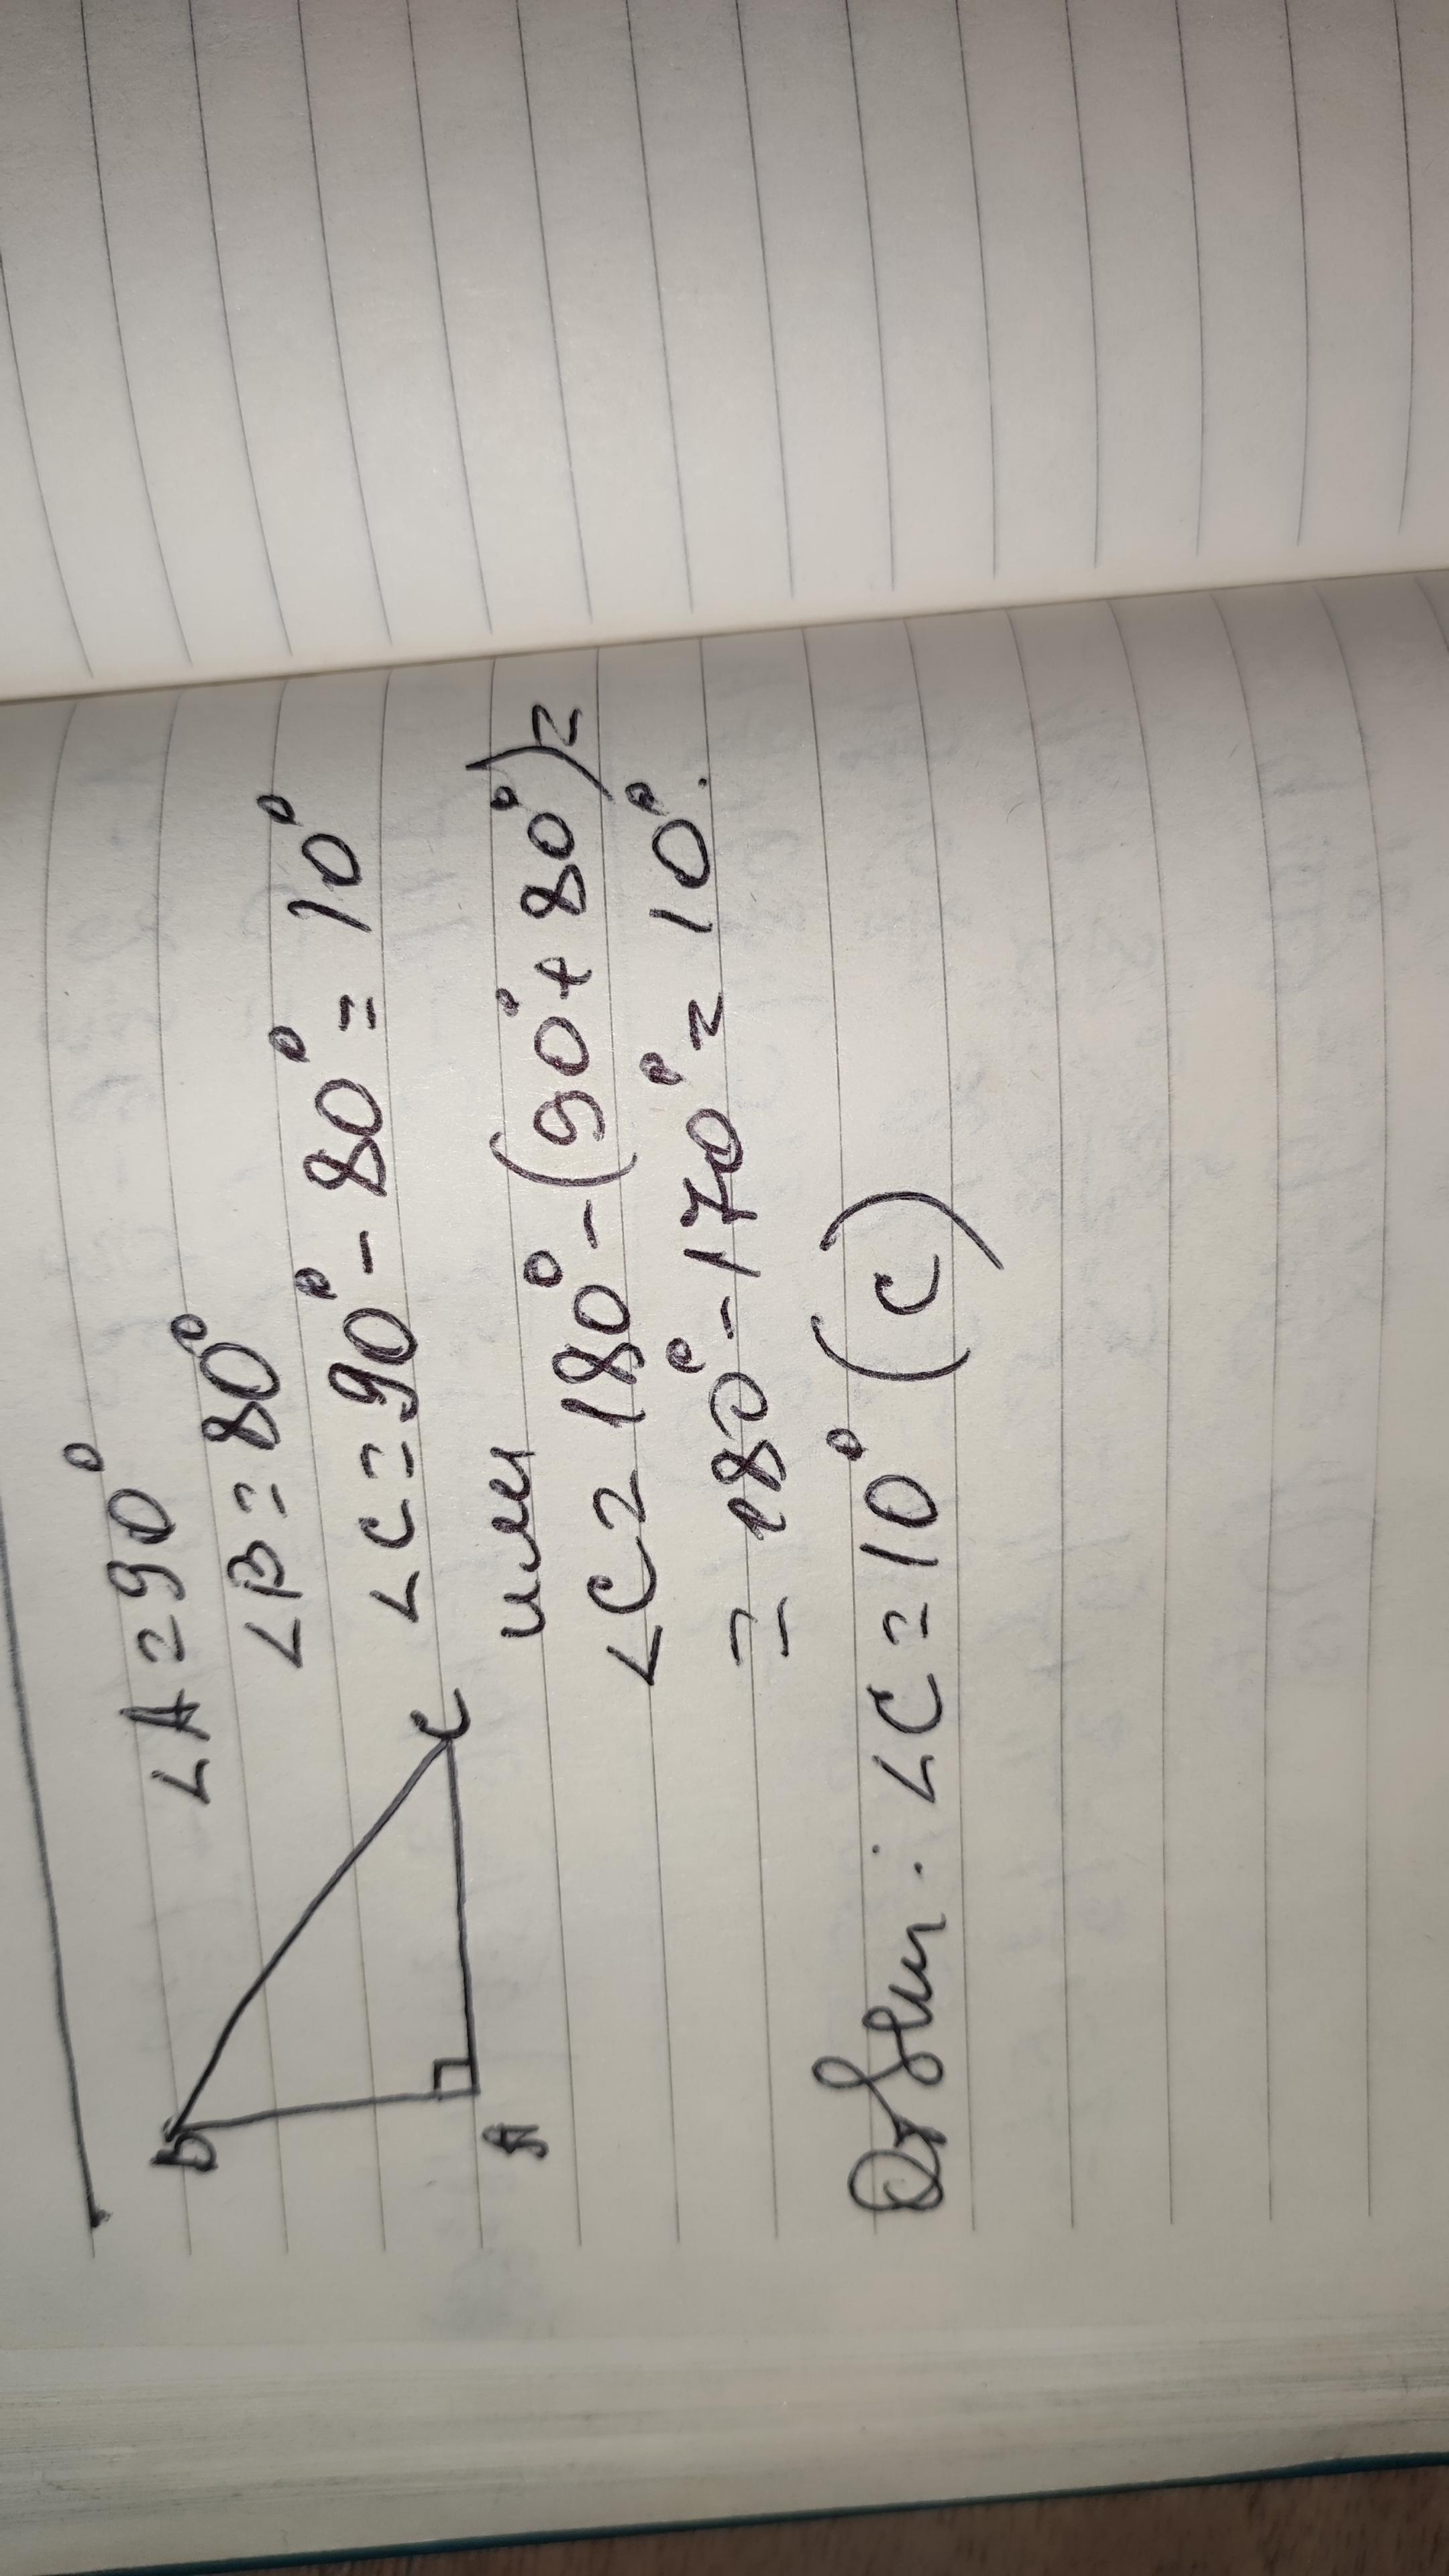 ∠A = 90°
∠B = 80°
∠C = 90° - 80° = 10°
или
∠C = 180° - (90° + 80°) =
= 180° - 170° = 10°.
Ответ: ∠C = 10° (C)
B
A
C